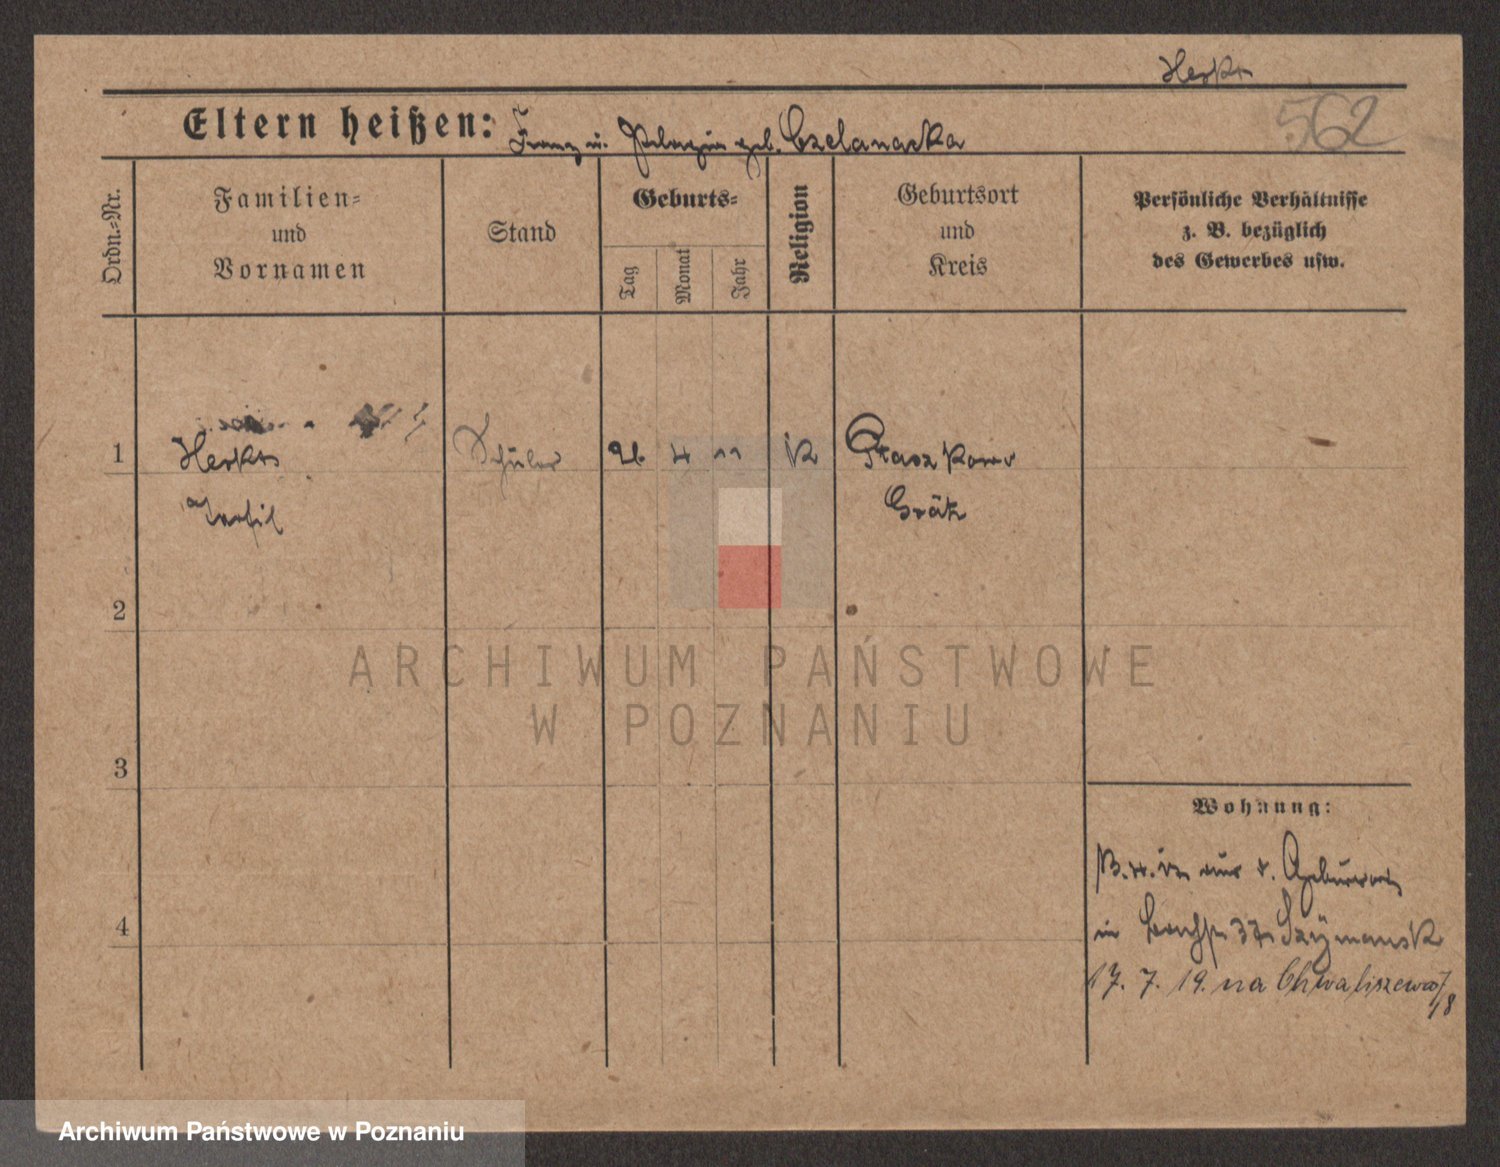 Herkt
562
Eltern heißen: Franz u. Pelagia geb. Czelanaska
Ordn.=Nr.
Familien= und Vornamen
Stand
Geburts=
Tag
Monat
Jahr
Religion
Geburtsort und Kreis
Persönliche Verhältnisse z. B. bezüglich des Gewerbes usw.
1
Schüler
26
4
11
K
Ptaszkowo
Grätz
2
ARCHIWUM PAŃSTWOWE
W POZNANIU
3
Wohnung:
4
in 37 Szymansk
17. 7. 19. na Chwaliszewo/
18
Archiwum Państwowe w Poznaniu